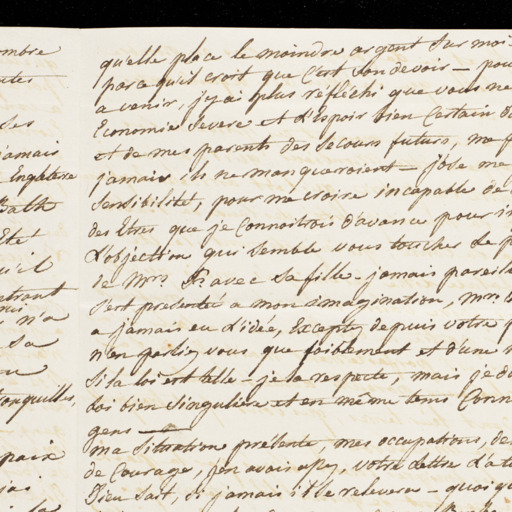 ombre
utes
ses
jamais
Ingaterre
Bath
Eté
qu'il
n'a
sa
ou
tonquilles,
paix
j'ai
la
qu'elle place le moindre argent sur moi
parcequ'il croit que c'est son devoir — pou
avenir, j'y ai plus réfléchi que vous ne
Economie severe et l'Espoir bien certain d
et de mes parents des secours futurs, me f
jamais ils ne manqueroient — j'ose me
sensibilité, pour me croire incapable de
des Etres que je connaitrois d'avance pour in
L'objection qui semble vous toucher de p
de Mrs. avec sa fille — jamais pareil
s'est presenté a mon imagination, Mrs.
a jamais eu l'idée, Excepté depuis votre
n'en parliez vous que faiblement et d'une
Si la loi est telle — je la respecte, mais je d
loi bien singuliere et en même tems Conn
gens —
ma situation présente, mes occupations, de
de Courage, j'en avois assez, votre lettre l'a
Dieu sait, si jamais il se relevera — quoiqu